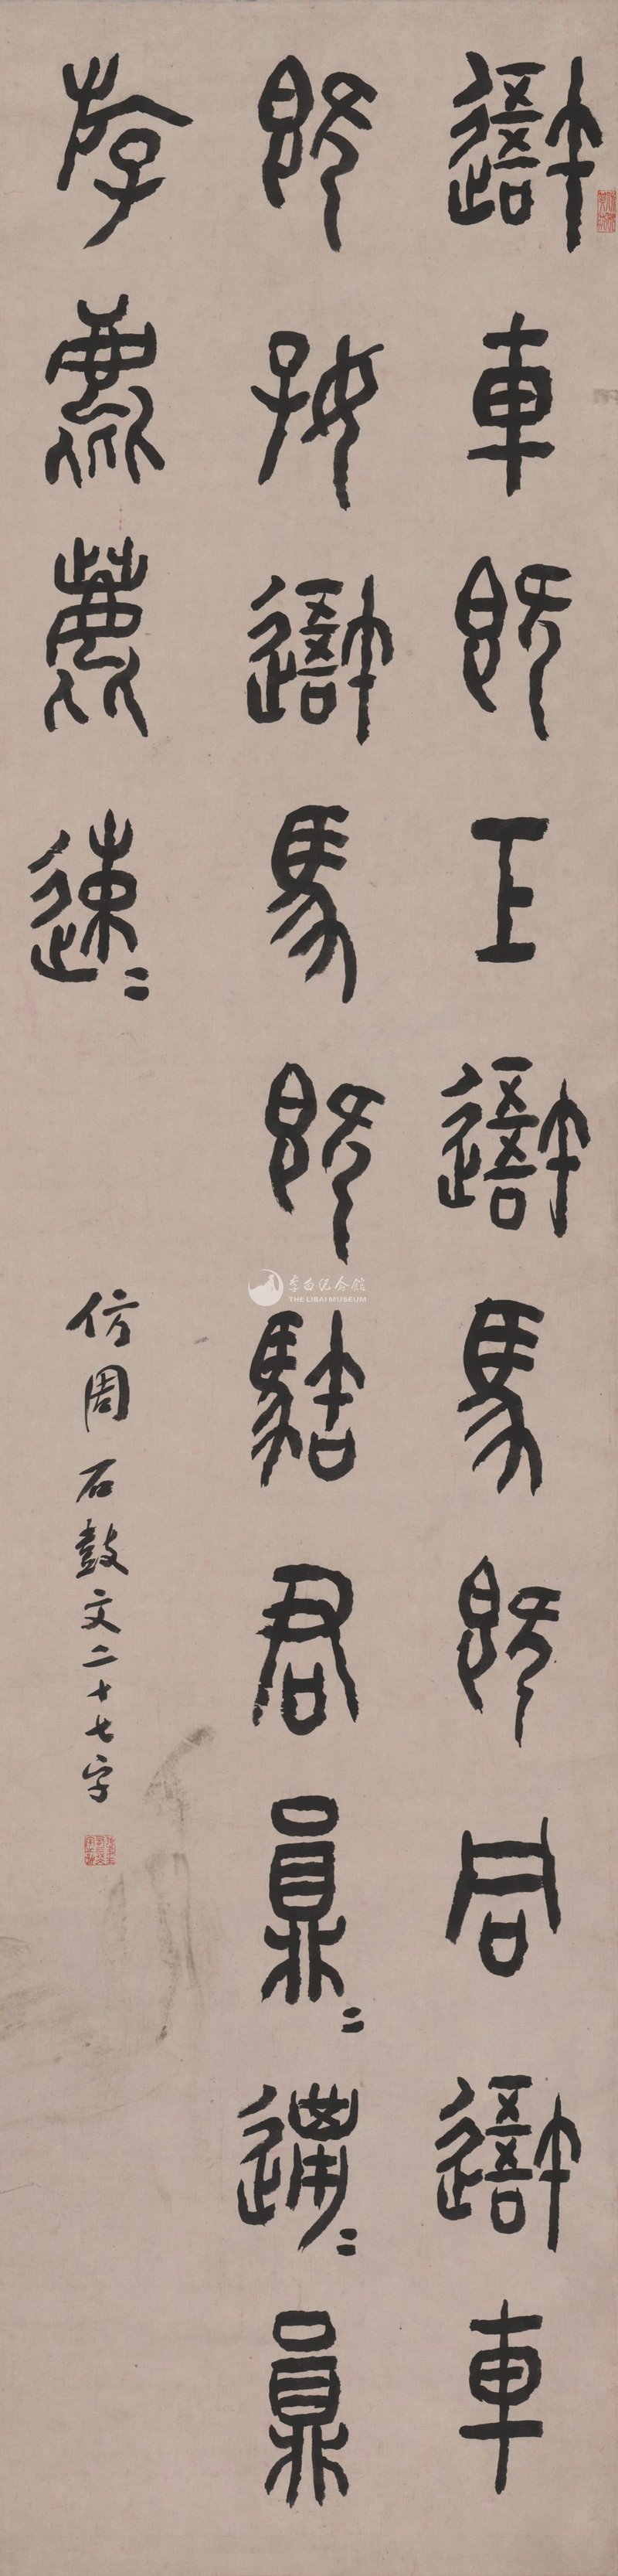 䢒車既工䢒馬既同䢒車
既好䢒馬既君員〻邋〻員
斿麀鹿速〻
仿周石鼓文二十七字
李白纪念馆
THE LIBAI MUSEUM